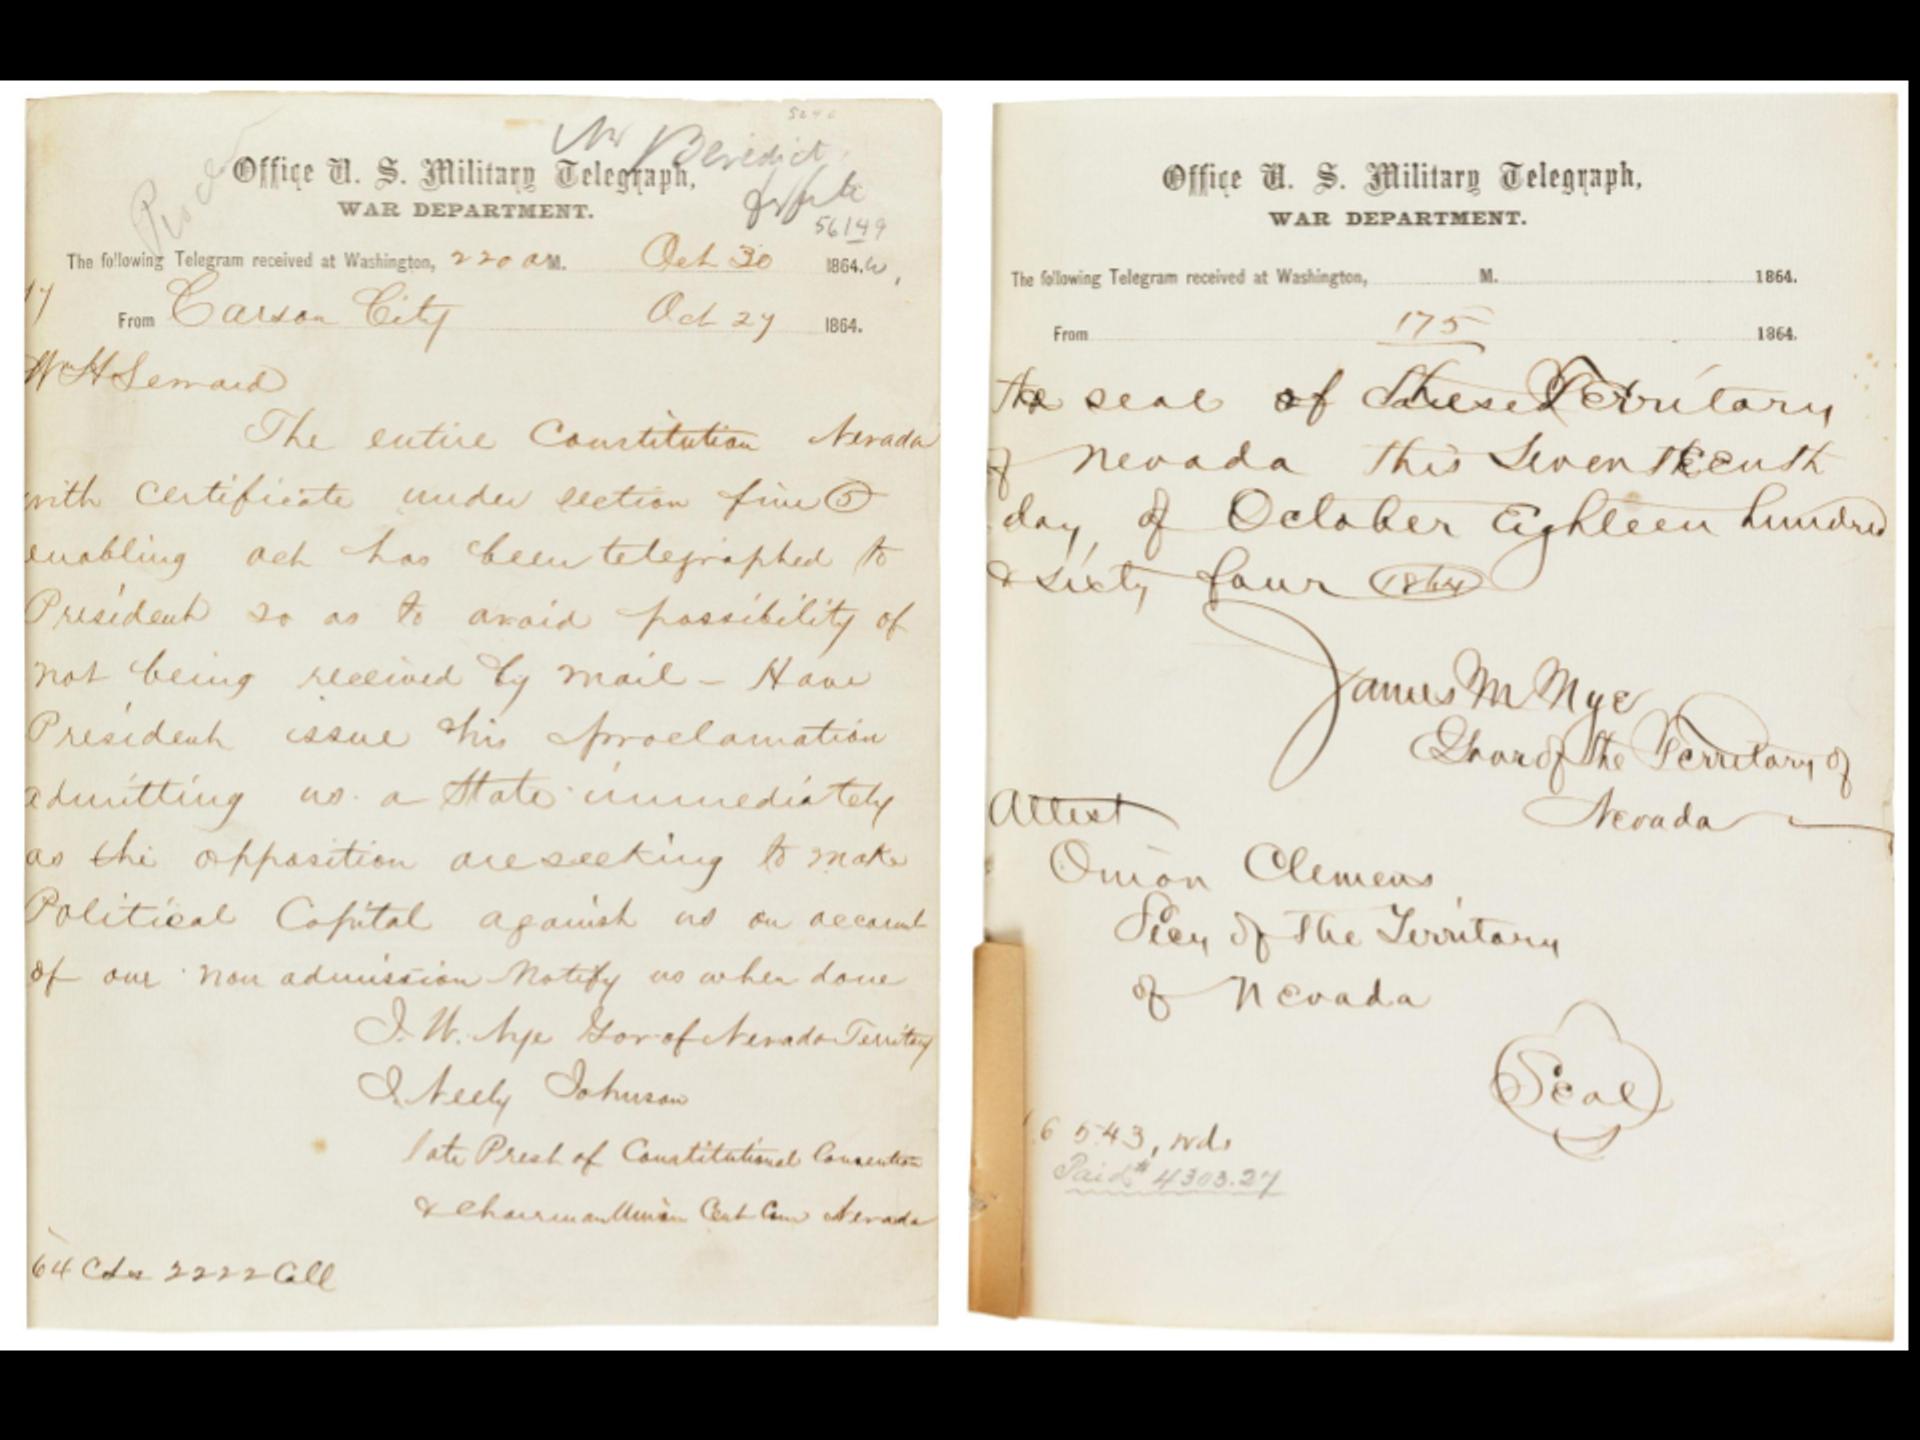 5240
Mr Benedict
Office U. S. Military Telegraph,
WAR DEPARTMENT.
56149
The following Telegram received at Washington, 220 a M. Oct 30 1864.
17
From Carson City Oct 27 1864.
Wm H Seward
The entire Constitution Nevada
with Certificate under section five (5)
enabling act has been telegraphed to
President so as to avoid possibility of
not being received by mail - Have
President issue his proclamation
admitting us a State immediately
as the opposition are seeking to make
Political Capital against us on account
of our non admission Notify us when done
J. W. Nye Gov of Nevada Territory
J. Neely Johnson
late Prest of Constitutional Convention
& Chairman Union Cent Com Nevada
64 2222 Coll
Office U. S. Military Telegraph,
WAR DEPARTMENT.
The following Telegram received at Washington, M. 1864.
From 175 1864.
the seal of Territory
of Nevada this Seventeenth
day, of October Eighteen hundred
& sixty four (1864)
James M Nye
Gov of the Territory of
Nevada
Attest
Orion Clemens
Secy of the Territory
of Nevada
Seal
6 543, wds
Paid $ 4303.27